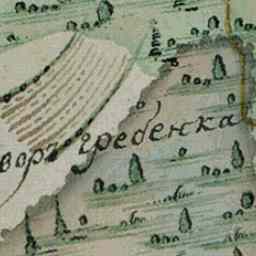 воръ гребенка